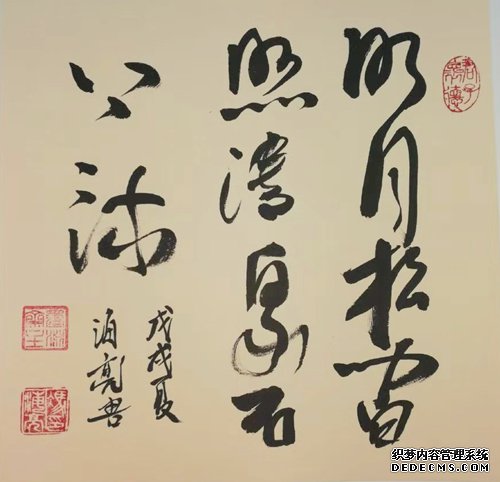 明月松间
照清泉石
上流
戊戌夏
泊亮书
织梦内容管理系统
DEDECMS.COM